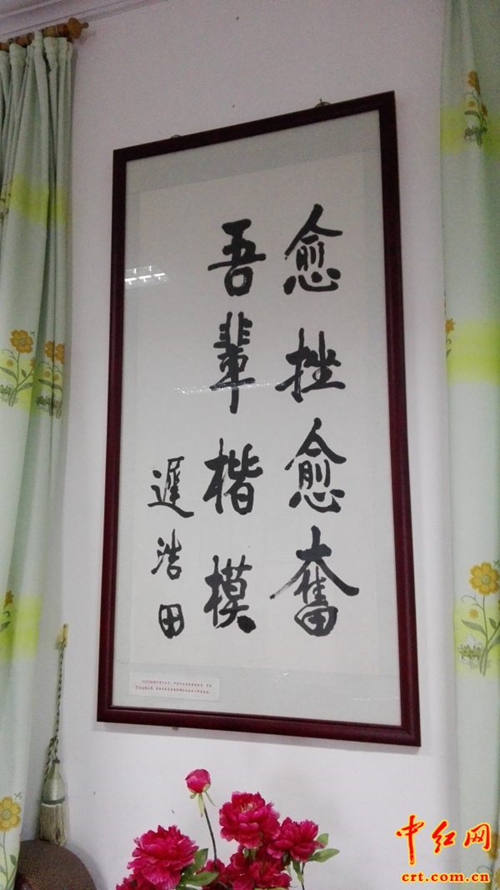 愈挫愈奮
吾輩楷模
遲浩田
中红网
crt.com.cn